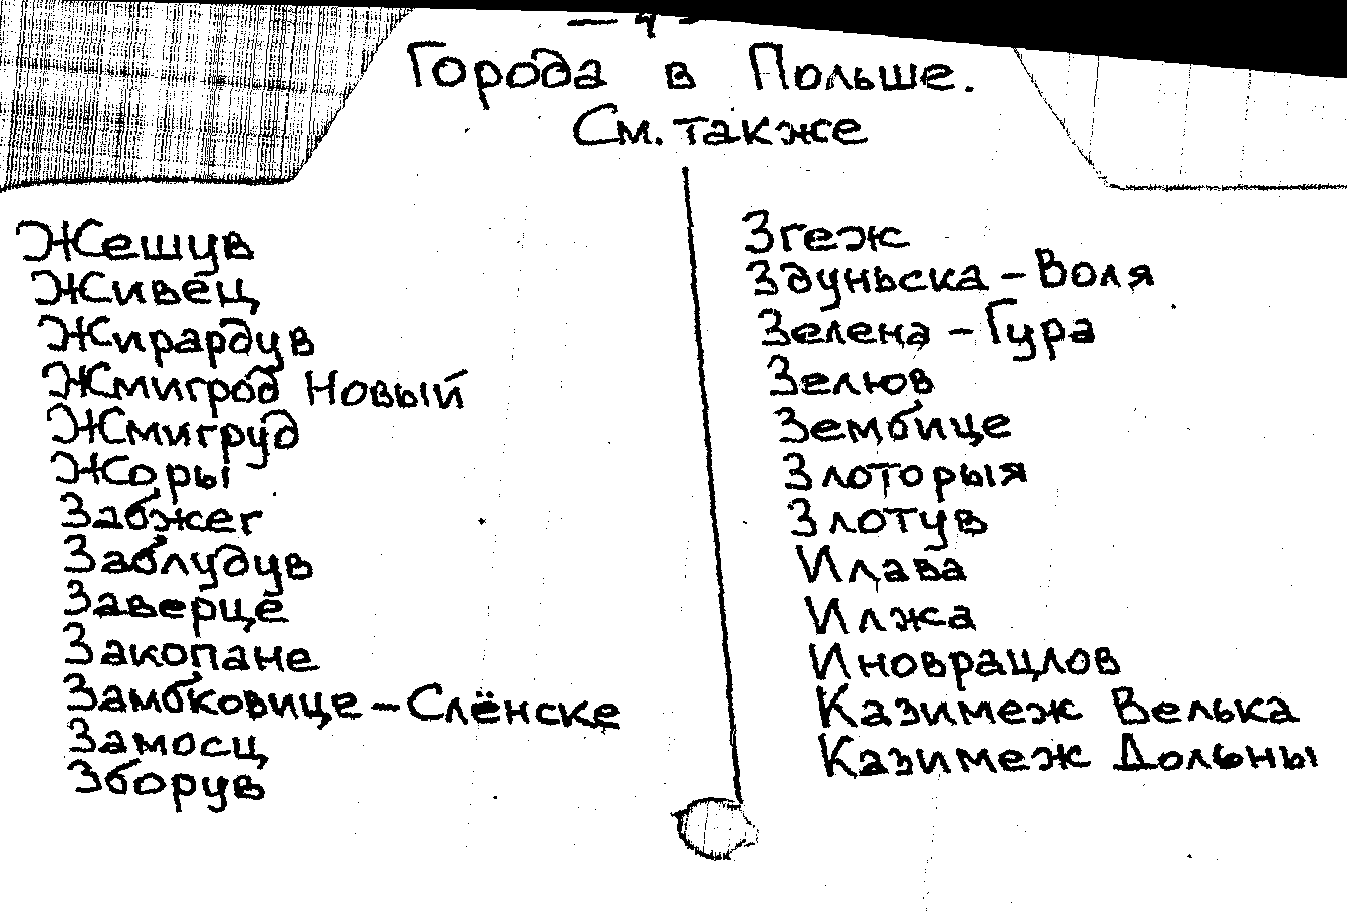 — 4 —
Города в Польше.
См. также
Жешув
Живец
Жирардув
Жмигрод Новый
Жмигруд
Жоры
Забжег
Заблудув
Заверце
Закопане
Замбковице – Слёнске
Замосц
Зборув
Згеж
Здуньска – Воля
Зелена – Гура
Зелюв
Зембице
Злоторыя
Злотув
Илава
Илжа
Иноврацлов
Казимеж Велька
Казимеж Дольны